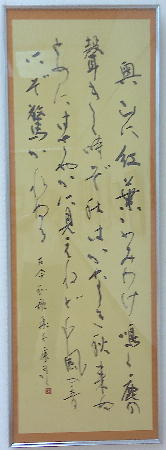 奥山に紅葉ふみわけ鳴く鹿の
聲きく時ぞ秋はかなしき秋来ぬ
とめにはさやかに見えねども風の音
にぞ驚かれぬる
古今和歌集